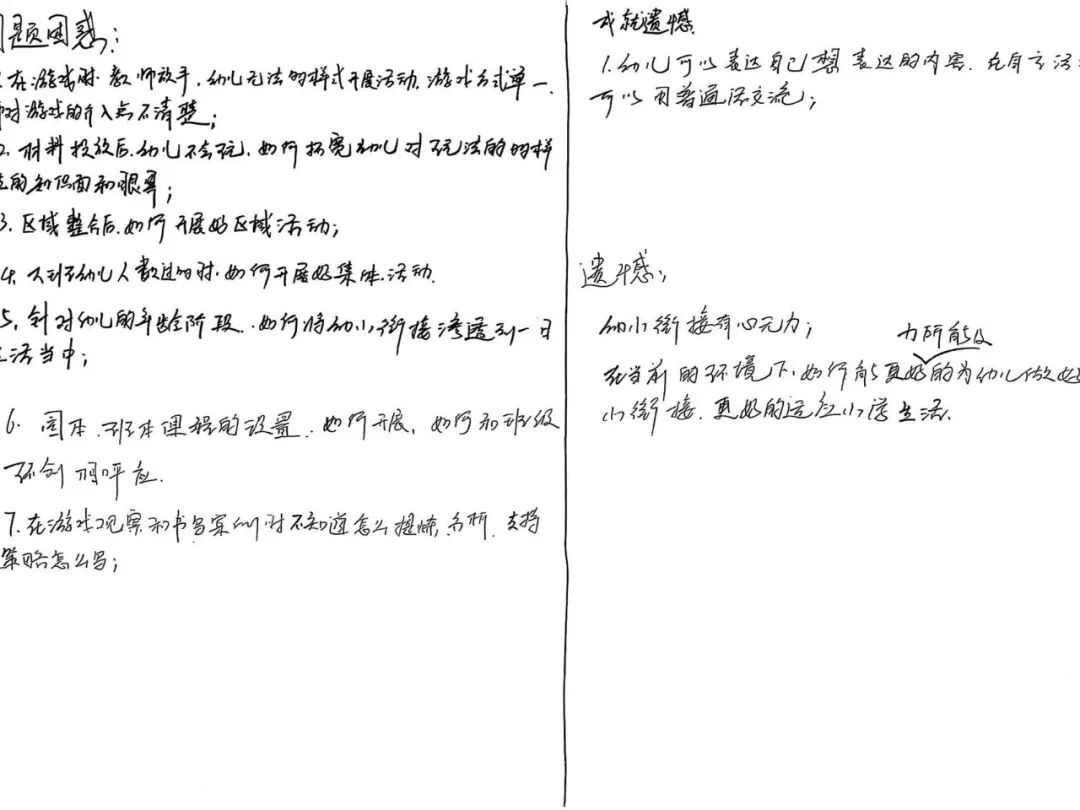 问题困惑：
1. 在游戏时教师放手，幼儿无法多样式开展活动，游戏方式单一，
对游戏的介入点不清楚；
2. 材料投放后，幼儿不会玩，如何拓宽幼儿对玩法的多样
性的知识面和眼界；
3. 区域整合后，如何开展好区域活动；
4、人到园幼儿人数过多时，如何开展好集体活动。
5、针对幼儿的年龄阶段，如何将幼小衔接渗透到一日
生活当中；
6. 园本、班本课程的设置，如何开展，如何和班级
环创相呼应。
7. 在游戏观察和书写案例时不知道怎么提炼，分析，支持
策略怎么写；
成就遗憾
1. 幼儿可以表达自己想表达的内容，
可以用普通话交流；
遗憾：
幼小衔接有心无力；
力所能及
在当前的环境下，如何能更好的为幼儿做好
小衔接，更好的适应小学生活。